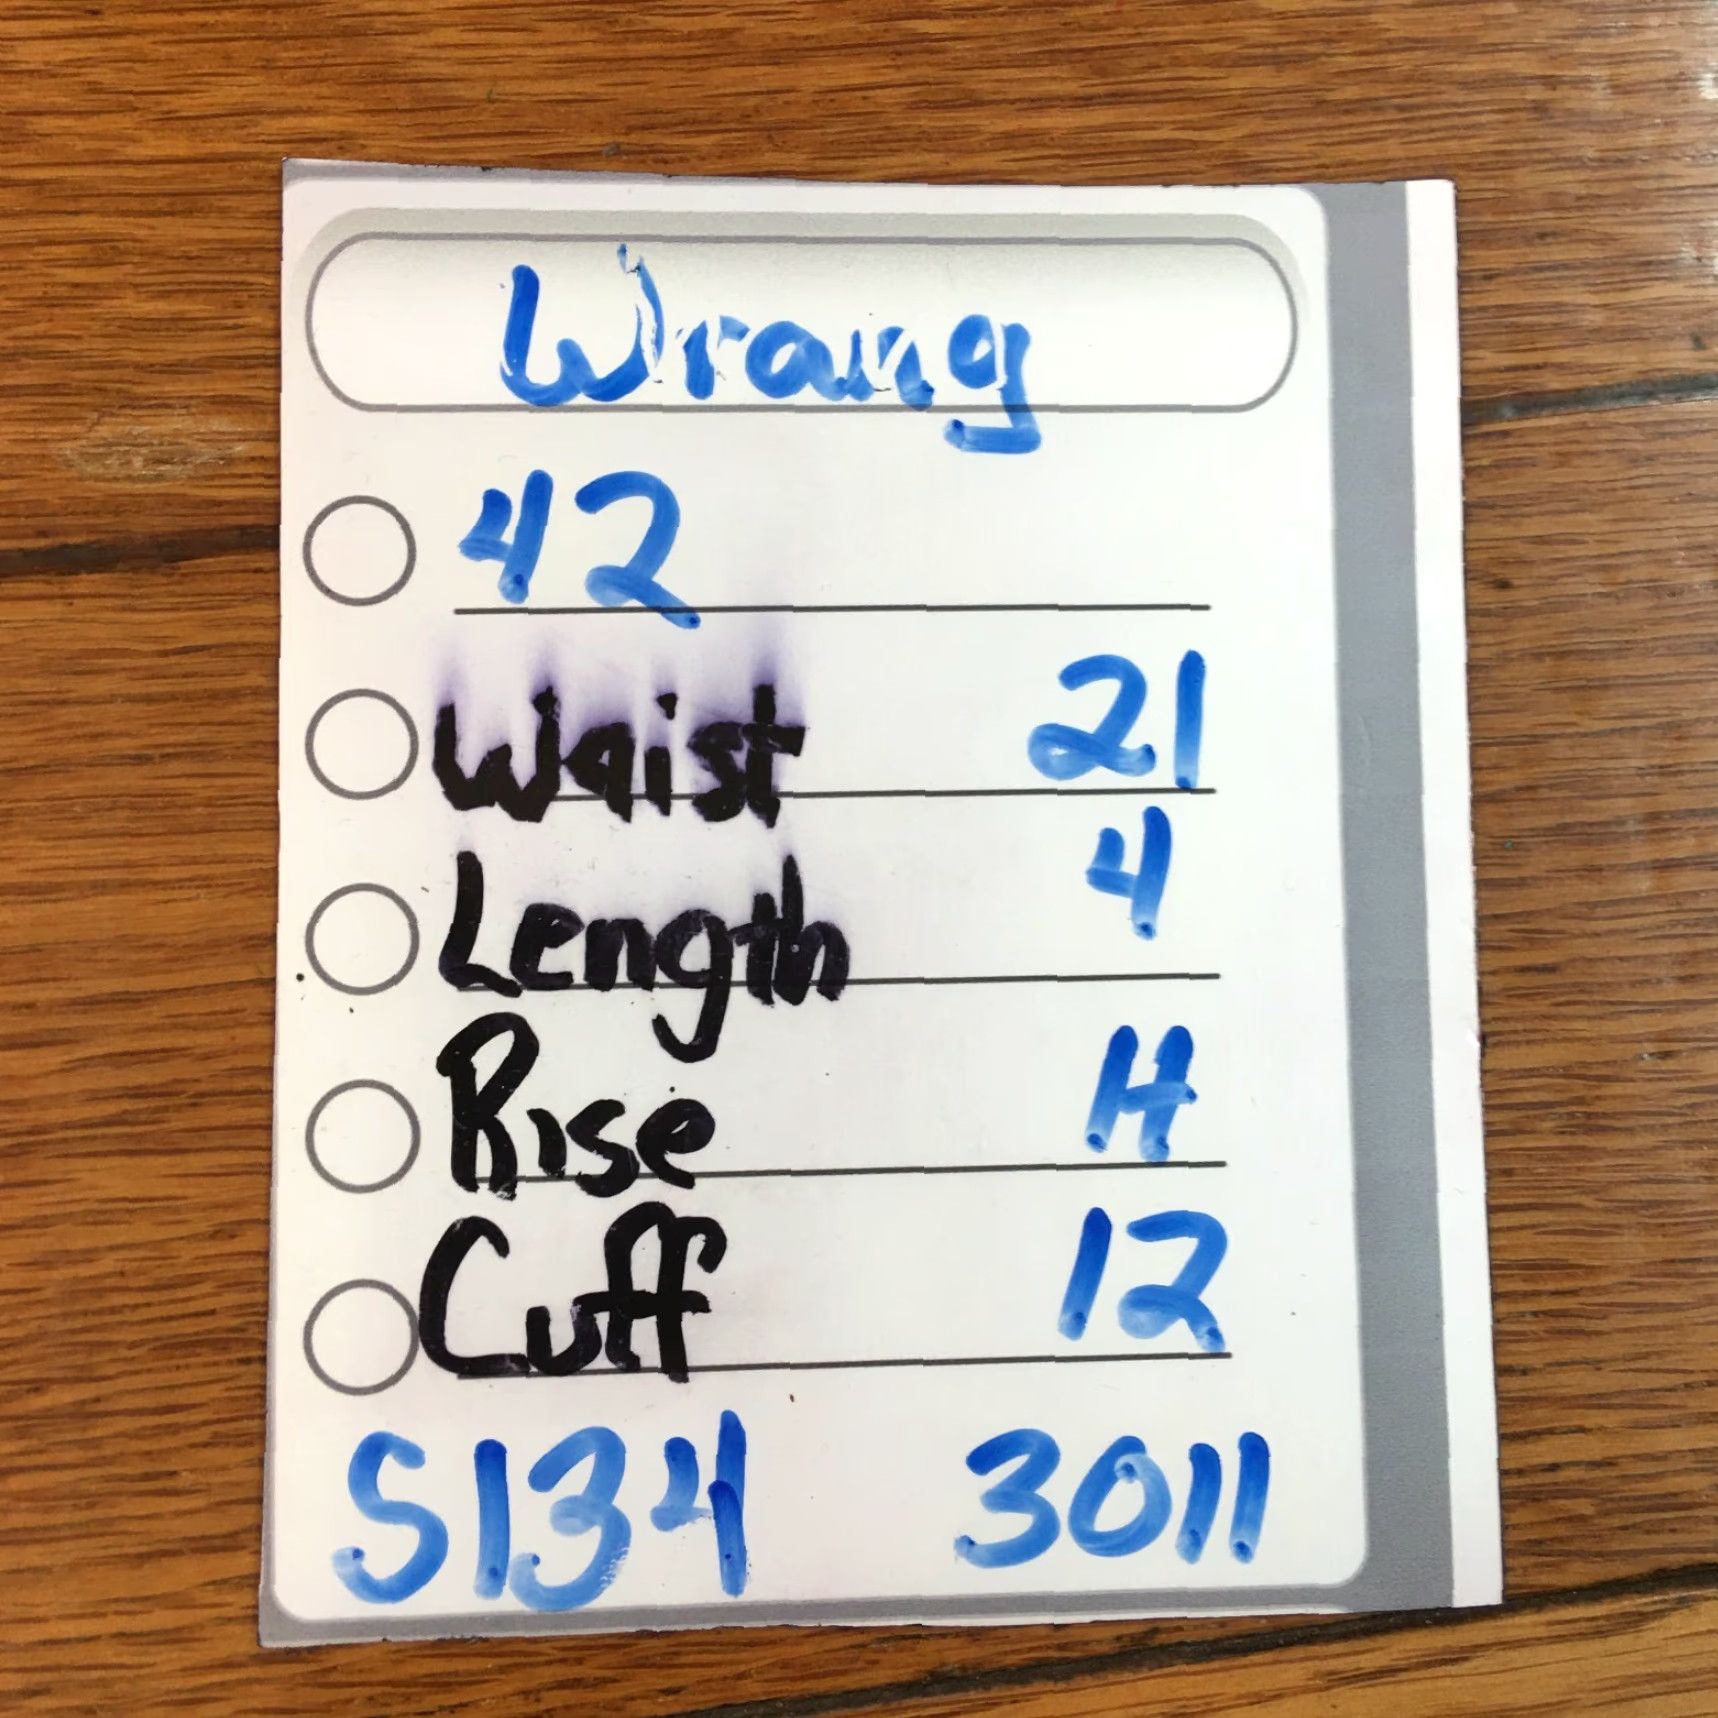 Wrang
42
Waist 21
Length 4
Rise 14
Cuff 12
S134 3011